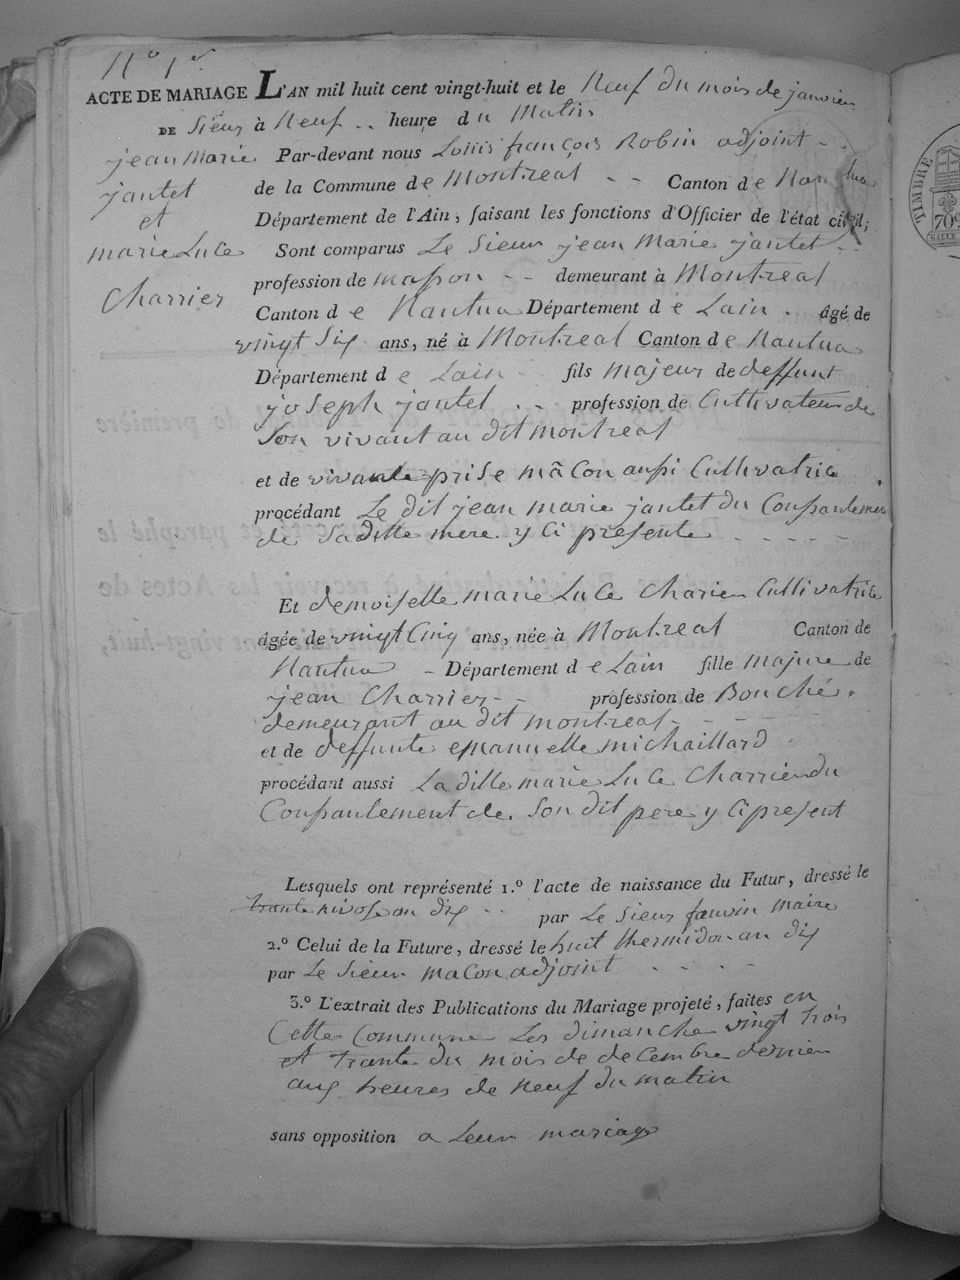 N.o 1.er
ACTE DE MARIAGE L'AN mil huit cent vingt-huit et le Neuf du mois de janvier
DE Sieur à Neuf -- heure du Matin
jean Marie Par-devant nous Louis françois Robin adjoint --
jantet de la Commune de Montreal -- Canton de Nantua
et Département de l'Ain, faisant les fonctions d'Officier de l'état civil;
marie Luce Sont comparus Le Sieur jean Marie jantet --
Charrier profession de masson -- demeurant à Montreal
Canton de Nantua Département de Lain - âgé de
vingt Six ans, né à Montreal Canton de Nantua
Département de Lain - fils majeur de deffunt
joseph jantet -- profession de Cultivateur de
Son vivant au dit montreal
et de vivante prise mâcon aussi Cultivatrice
procédant Le dit jean marie jantet du Consantement
de Saditte mere y Ci presente - - - - -
Et demoiselle marie Luce Charier Cultivatrice
âgée de vingt Cinq ans, née à Montreal Canton de
Nantua - Département de Lain fille majeure de
jean Charrier -- profession de Bouché.
demeurant au dit montreal - - - -
et de deffunte emanuelle michaillard
procédant aussi La ditte marie Luce Charrier du
Consantement de Son dit pere y Ci present
Lesquels ont représenté 1.o l'acte de naissance du Futur, dressé le
trante nivose an dix -- par Le Sieur maire
2.o Celui de la Future, dressé le huit thermidor an dix
par Le Sieur macon adjoint - - - -
3.o L'extrait des Publications du Mariage projeté, faites en
Cette Commune Les dimanche vingt trois
et trante du mois de decembre dernier
aux heures de neuf du matin
sans opposition a Leur mariage
TIMBRE